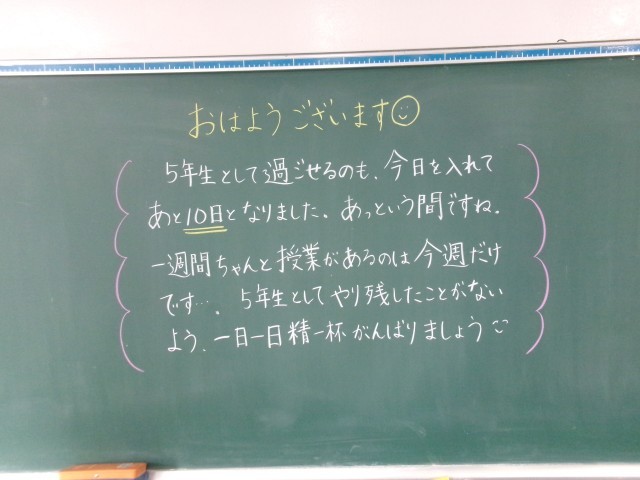 おはようございます
5年生として過ごせるのも、今日を入れて
あと10日となりました。あっという間ですね。
一週間ちゃんと授業があるのは今週だけ
です…。5年生としてやり残したことがない
よう、一日一日精一杯がんばりましょう